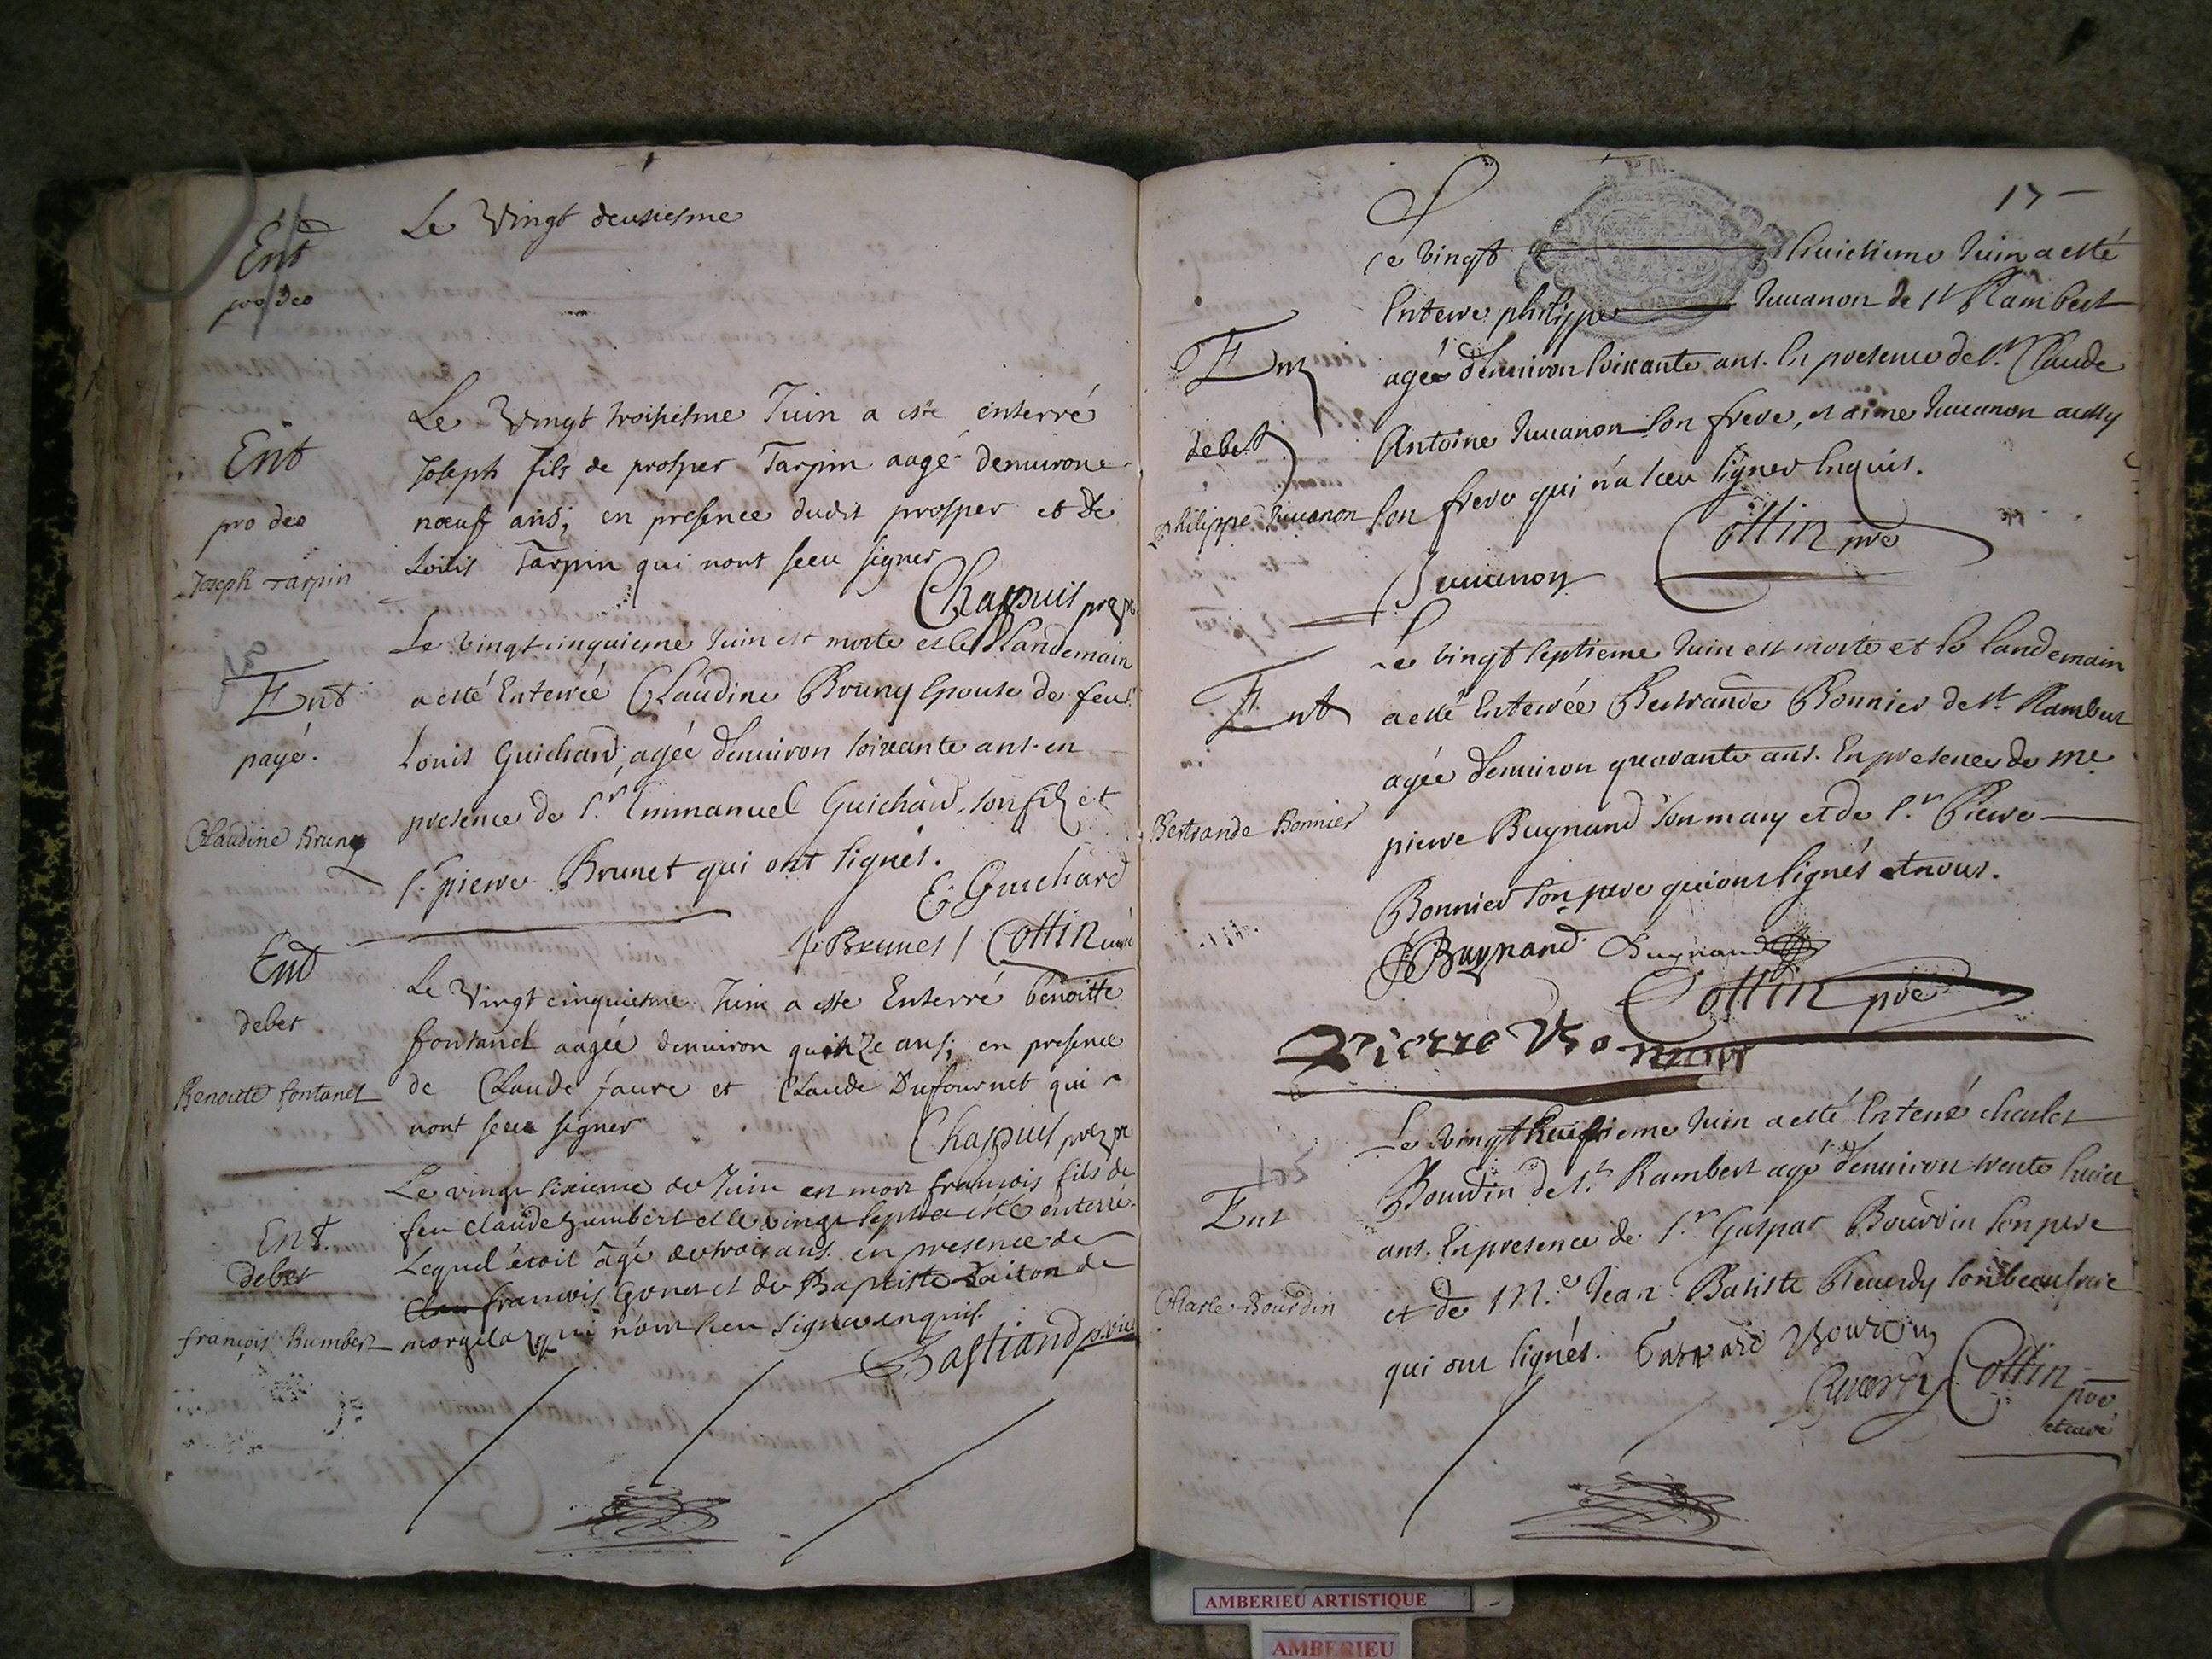 Ent
pro deo
Le Vingt deusiesme
Ent
pro deo
Joseph Tarpin
Le Vingt troisiesme Juin a esté enterré
Joseph fils de prosper Tarpin aagé denuiron
nœuf ans; en presence dudit prosper et de
Loüis Tarpin qui nont sceu signer
Chappuis
Ent
payé.
Claudine Bruny
Le vingt cinquieme Juin est morte et le Landemain
a esté Enterrée Claudine Bruny Epouse de feu
Louis Guichard, agée d'enuiron soixante ans. en
presence de Sr. Emmanuel Guichard son filz et
Sr. pierre Brunet qui ont signés.
E. Guichard
Brunet Cottin curé
Ent
debet
Benoitte fontanel
Le Vingt cinquiesme Juin a esté Enterré benoitte
fontanel aagée denuiron quinze ans; en presence
de Claude faure et Claude Dufournet qui
nont sceu signer
Chappuis
Ent.
debet
françois Humbert
Le vingt sixieme de Juin est mort francois fils de
feu claude humbert et le vingt sept a esté enterré.
Lequel étoit âgé de trois ans. en presence de
francois Gonet et de Baptiste de
morgelaz qui n'ont sceu signer enquis.
Bastiand
17
Ent
debet
philippe Juuanon
Le vingt huictieme Juin a esté
Enterré philippe Juuanon de St Rambert
agée d'enuiron soixante ans. En presence de Sr. Claude
Antoine Juuanon son frere, et aimé Juuanon aussy
son frere qui n'a sceu signer Enquis.
Cottin pre
Juuanon
Ent
Bertrande Bonnier
Le vingt septieme Juin est morte et le landemain
a esté Enterrée Bertrande Bonnier de St. Rambert
agée d'enuiron quarante ans. En presence de Me.
pierre Buynand son mary et de Sr. Pierre
Bonnier son pere qui ont signés et nous.
Buynand Buynand
Cottin pre
Pierre Bonnier
Ent
Charle Bourdin
Le vingt huictieme Juin a esté Enterré charles
Bourdin de St. Rambert agé d'enuiron trente huict
ans. En presence de Sr. Gaspar Bourdin son pere
et de Me. Jean Batiste Reuerdy son beaufrere
qui ont signés. Gaspard Bourdin
Reuerdy Cottin pre
et curé
AMBERIEU ARTISTIQUE
AMBERIEU